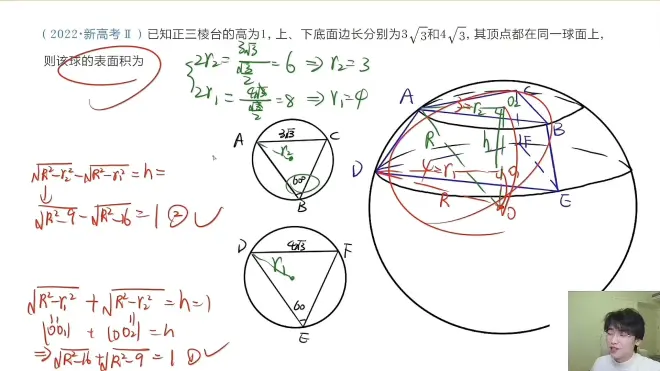 (2022·新高考Ⅱ)已知正三棱台的高为1,上、下底面边长分别为3√3和4√3,其顶点都在同一球面上,
则该球的表面积为
2r₂=3√3/(√3/2)=6⇒r₂=3
2r₁=4√3/(√3/2)=8⇒r₁=4
A 3√3 C
r₂
60°
B
D 4√3 F
r₁
60
E
√R²-r₂²-√R²-r₁²=h=
↓
√R²-9-√R²-16=1 ②
√R²-r₁²+√R²-r₂²=h=1
|OO₁|+|OO₂|=h
⇒√R²-16+√R²-9=1 ①
A
C
3=r₂
O₂
B
R
h
F
D
4=r₁
O₁
R
O
E